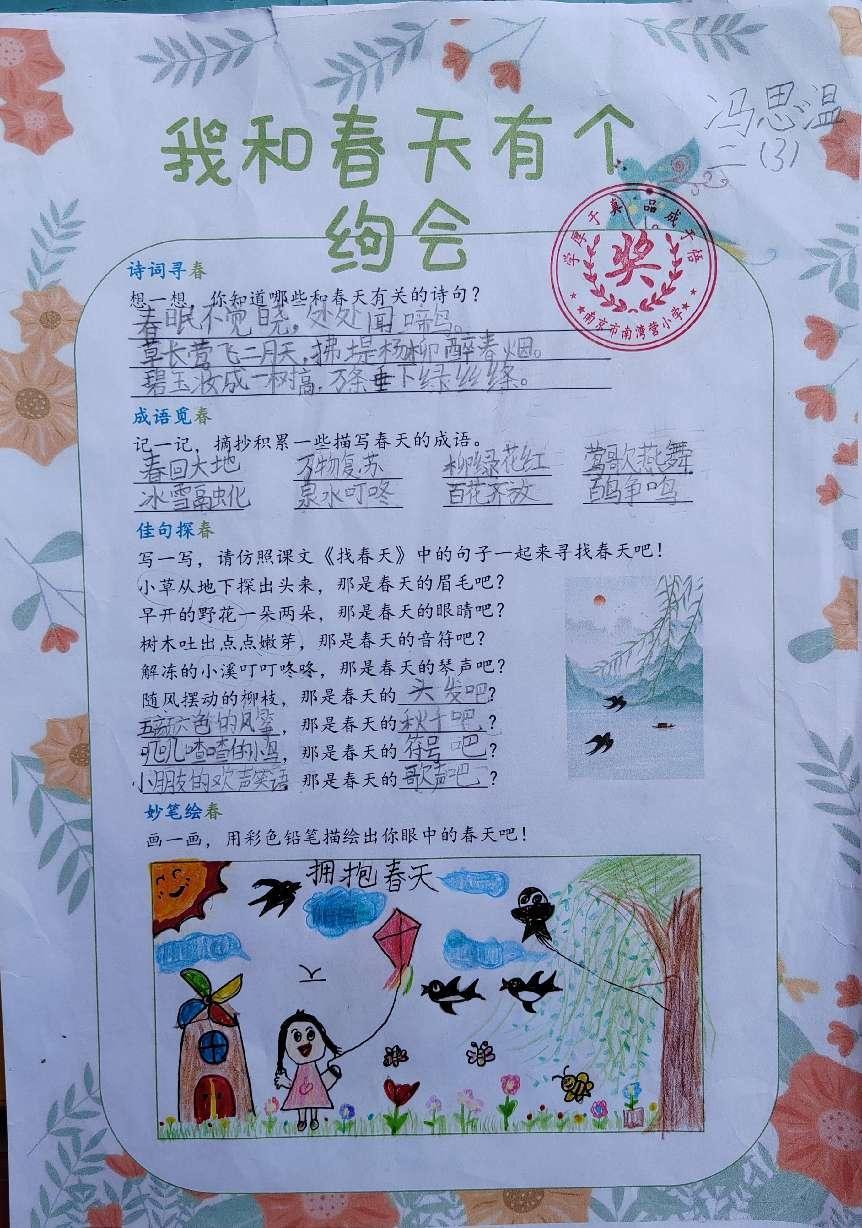 我和春天有个
约会
冯思温
二(3)
学厚于真 品成于悟
奖
南京市南湾营小学
诗词寻春
想一想，你知道哪些和春天有关的诗句？
春眠不觉晓，处处闻啼鸟。
草长莺飞二月天，拂堤杨柳醉春烟。
碧玉妆成一树高，万条垂下绿丝绦。
成语觅春
记一记，摘抄积累一些描写春天的成语。
春回大地 万物复苏 柳绿花红 莺歌燕舞
冰雪融化 泉水叮咚 百花齐放 百鸟争鸣
佳句探春
写一写，请仿照课文《找春天》中的句子一起来寻找春天吧！
小草从地下探出头来，那是春天的眉毛吧？
早开的野花一朵两朵，那是春天的眼睛吧？
树木吐出点点嫩芽，那是春天的音符吧？
解冻的小溪叮叮咚咚，那是春天的琴声吧？
随风摆动的柳枝，那是春天的头发吧？
五颜六色的风筝，那是春天的秋千吧？
叽叽喳喳的小鸟，那是春天的符号吧？
小朋友的欢声笑语 那是春天的歌声吧？
妙笔绘春
画一画，用彩色铅笔描绘出你眼中的春天吧！
拥抱春天